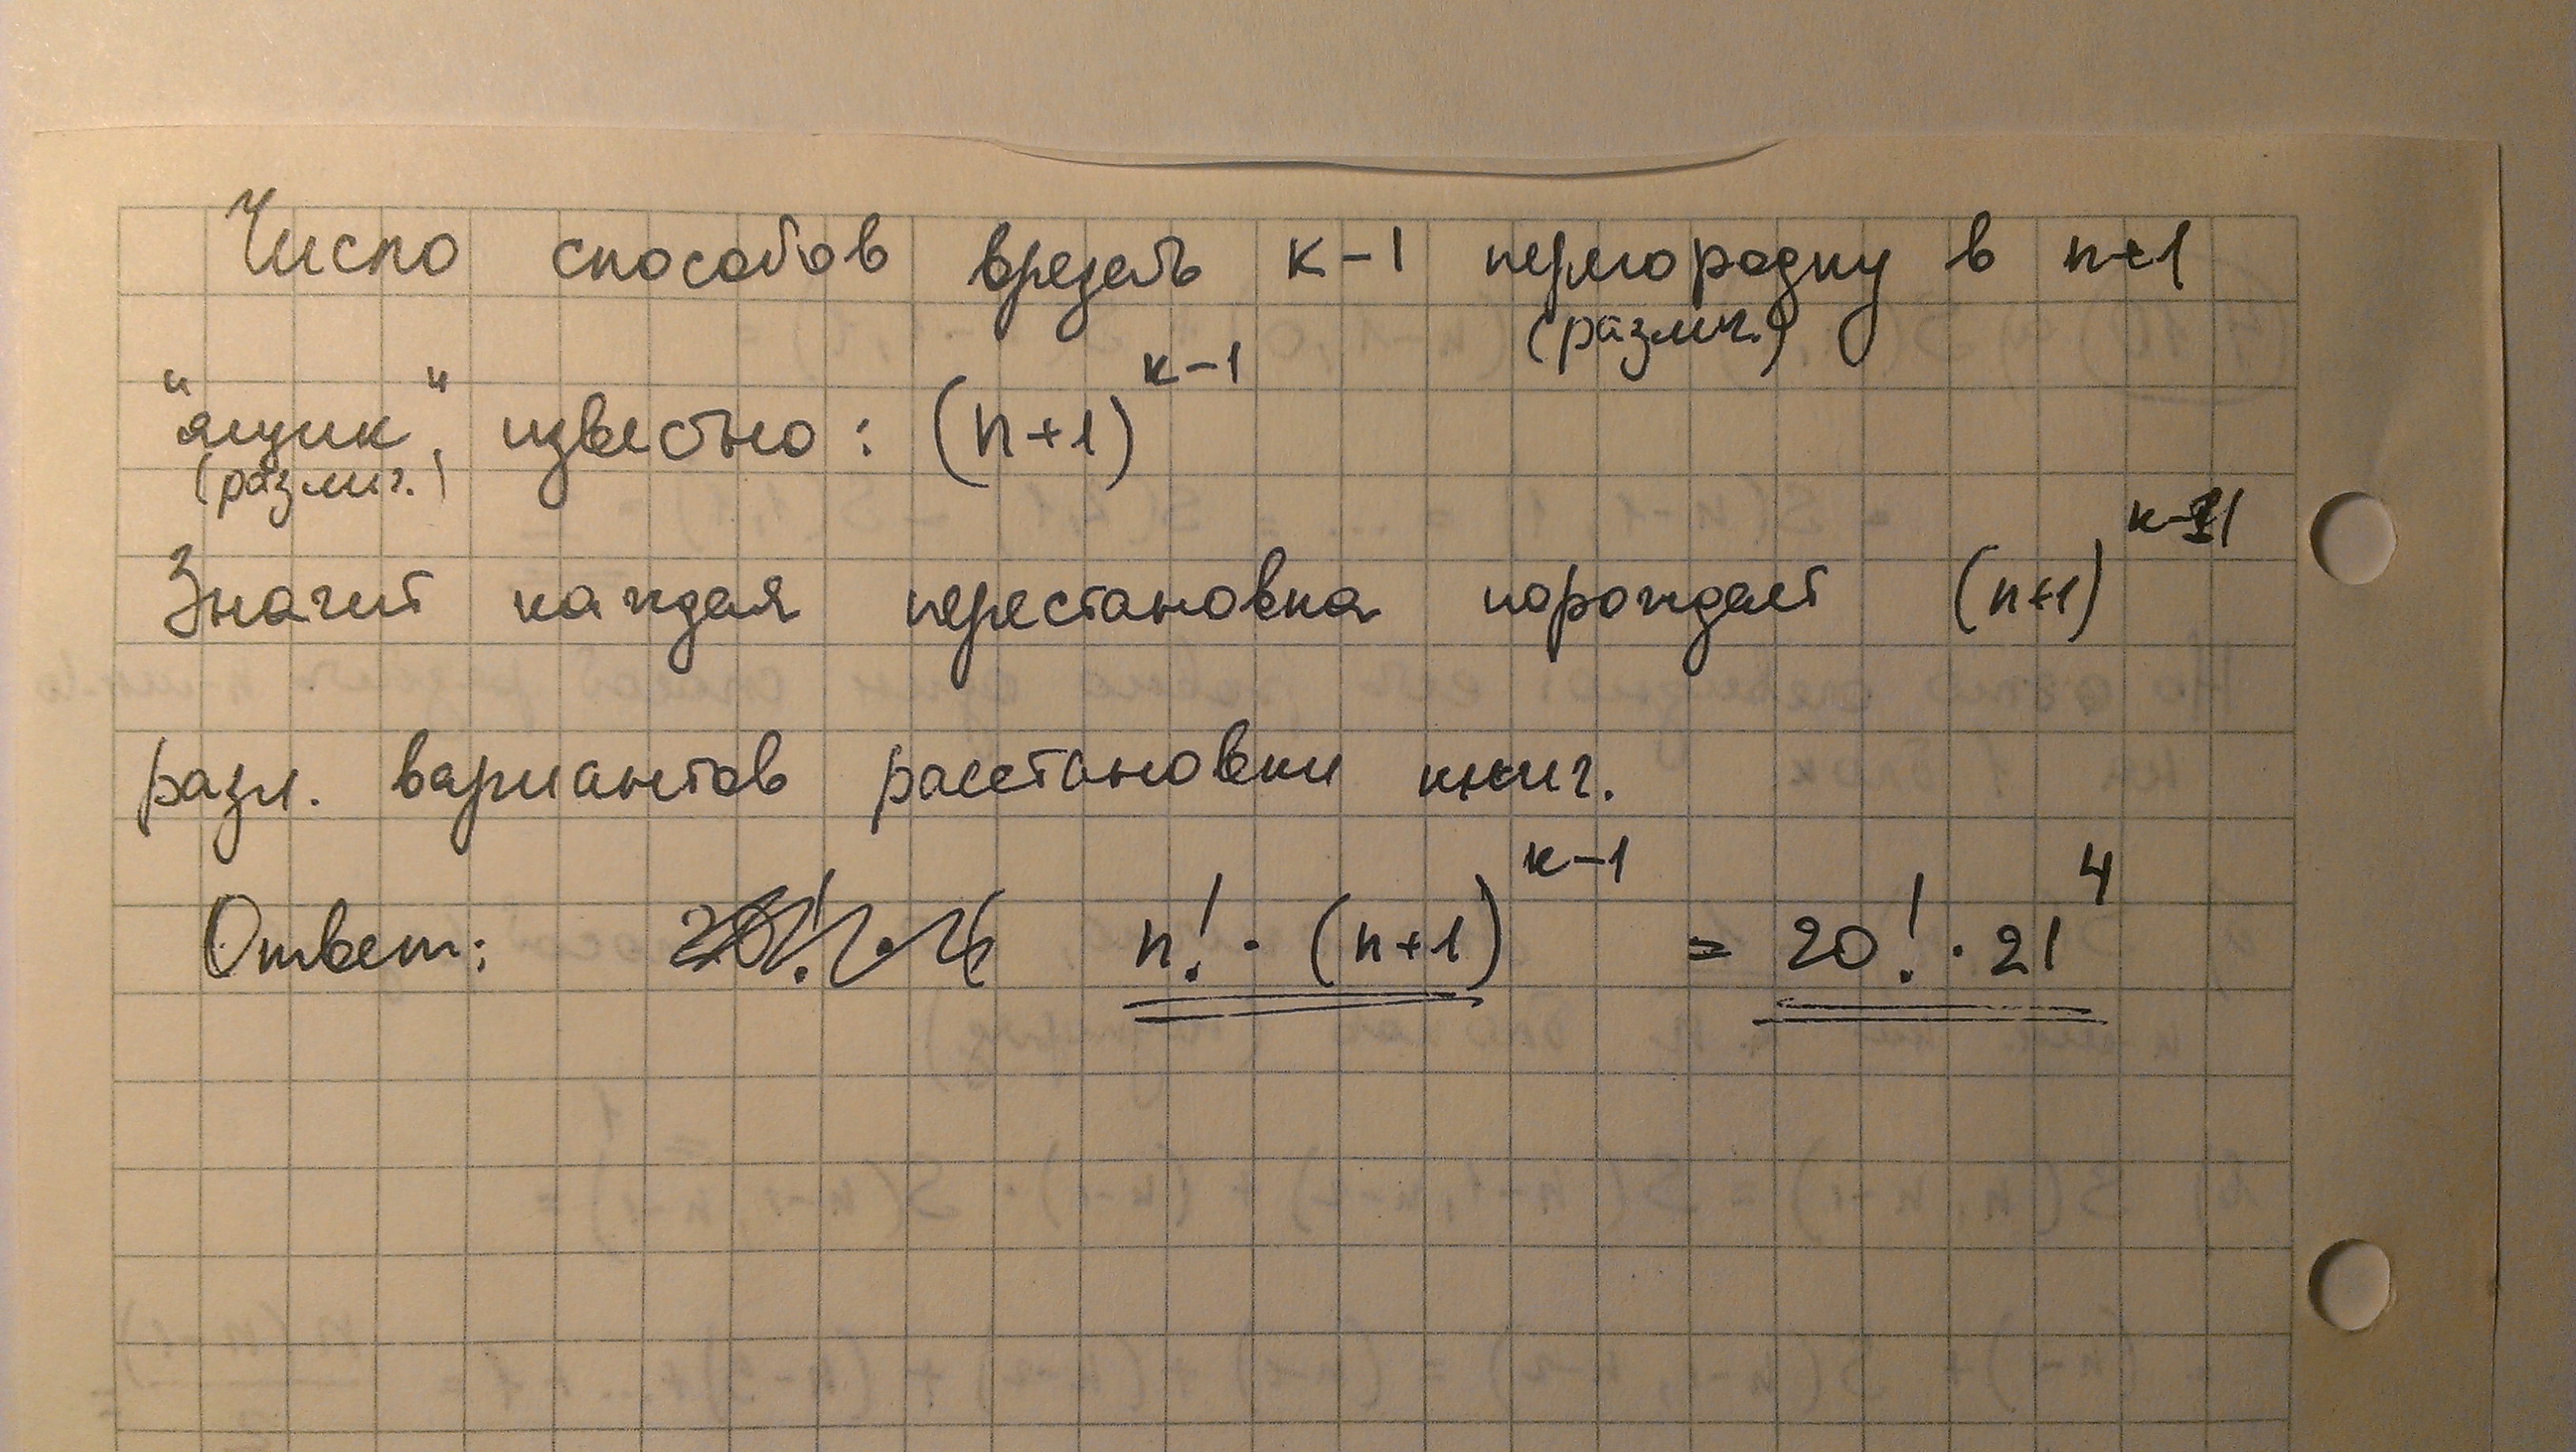 Число способов врезать k-1 перегородку в n+1
(различ.)
"ящик", известно: (n+1)^{k-1}
(различ.)
Значит каждая перестановка порождает (n+1)^{k-1}
разл. вариантов расстановки книг.
Ответ: n! · (n+1)^{k-1} = 20! · 21^4